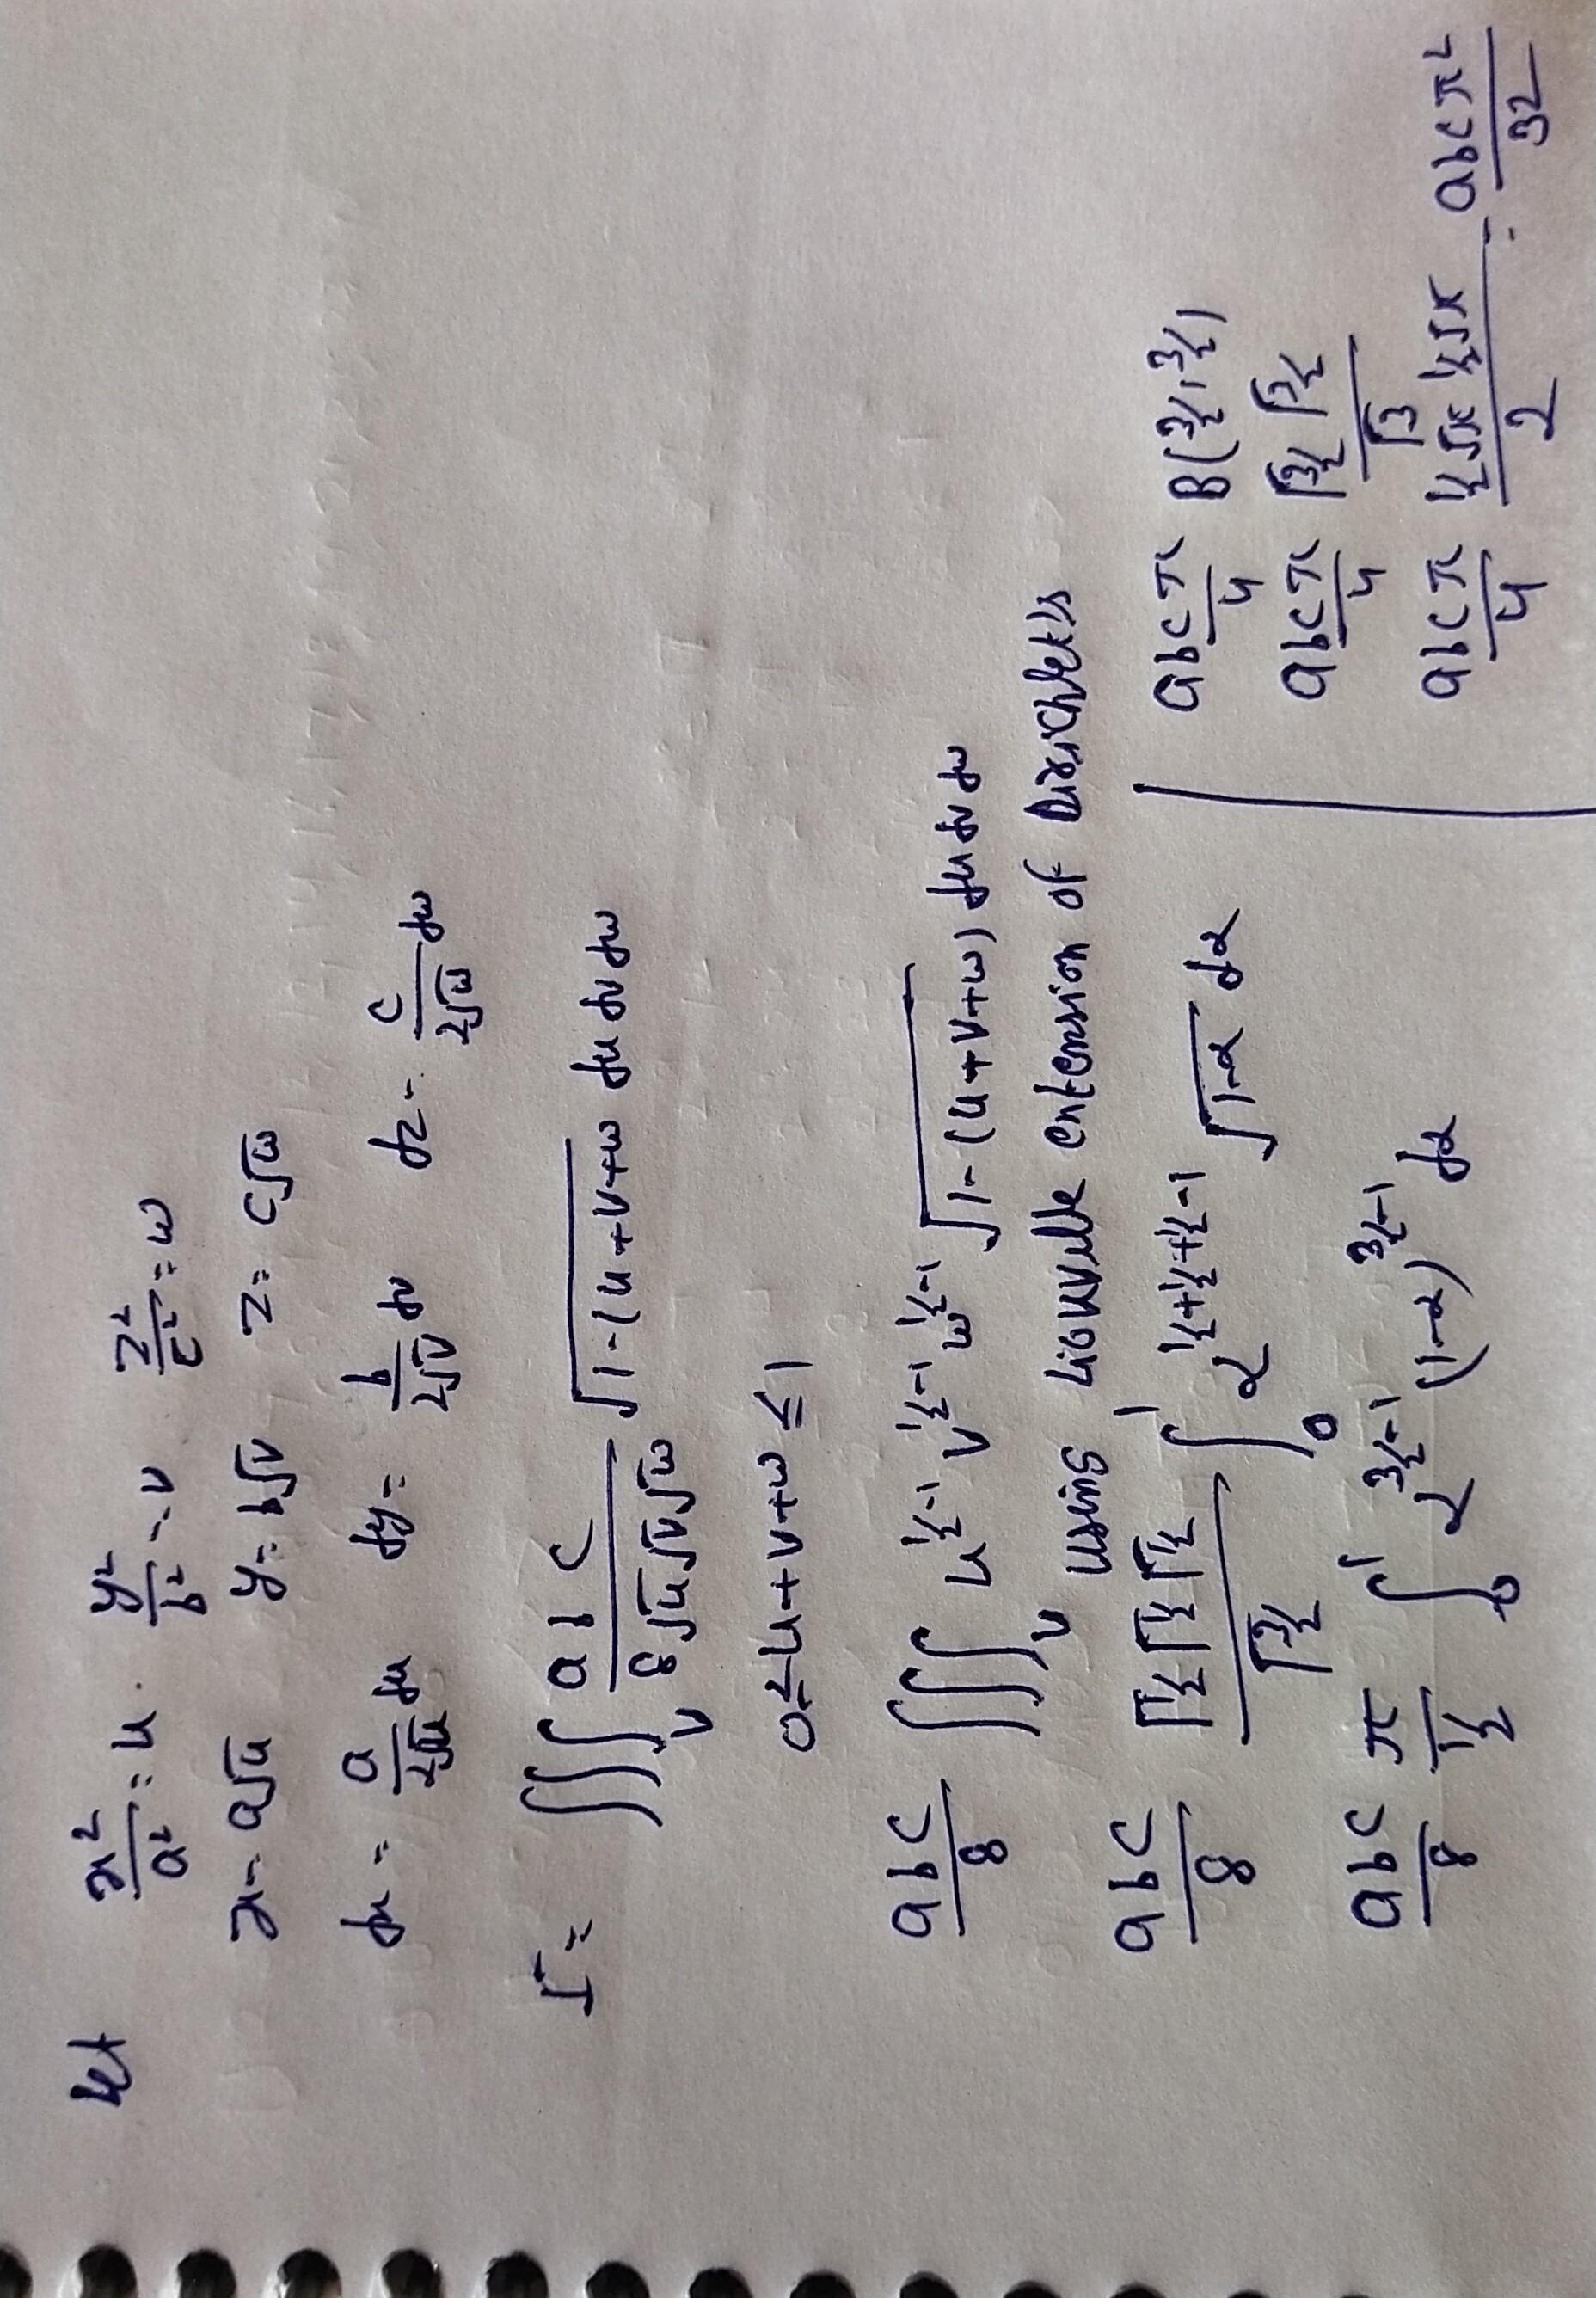 let x²/a² = u. y²/b² = v z²/c² = w
x = a√u y = b√v z = c√w
dx = a/2√u du dy = b/2√v dv dz = c/2√w dw
I = ∭_V abc/8√u√v√w √1-(u+v+w du dv dw
0≤u+v+w ≤ 1
abc/8 ∭_V u^(1/2-1) v^(1/2-1) w^(1/2-1) √1-(u+v+w) du dv dw
using Liouville extension of Dirichlets
abc/8 Γ1/2 Γ1/2 Γ1/2 / Γ3/2 ∫₀¹ α^(1/2+1/2+1/2-1) √1-α dα
abc/8 π/(1/2) ∫₀¹ α^(3/2-1) (1-α)^(3/2-1) dα
abc π/4 B(3/2, 3/2)
abc π/4 Γ3/2 Γ3/2 / Γ3
abc π/4 1/2√π 1/2√π / 2 = abc π²/32